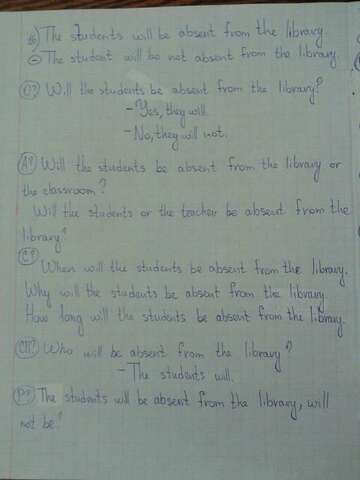 ⊕ The students will be absent from the library
⊖ The student will be not absent from the library.
O? Will the students be absent from the library?
- Yes, they will.
- No, they will not.
A? Will the students be absent from the library or
the classroom?
Will the students or the teacher be absent from the
library?
When will the students be absent from the library.
Why will the students be absent from the library
How long will the students be absent from the library.
СП? Who will be absent from the library?
- The students will.
P? The students will be absent from the library, will
not be?